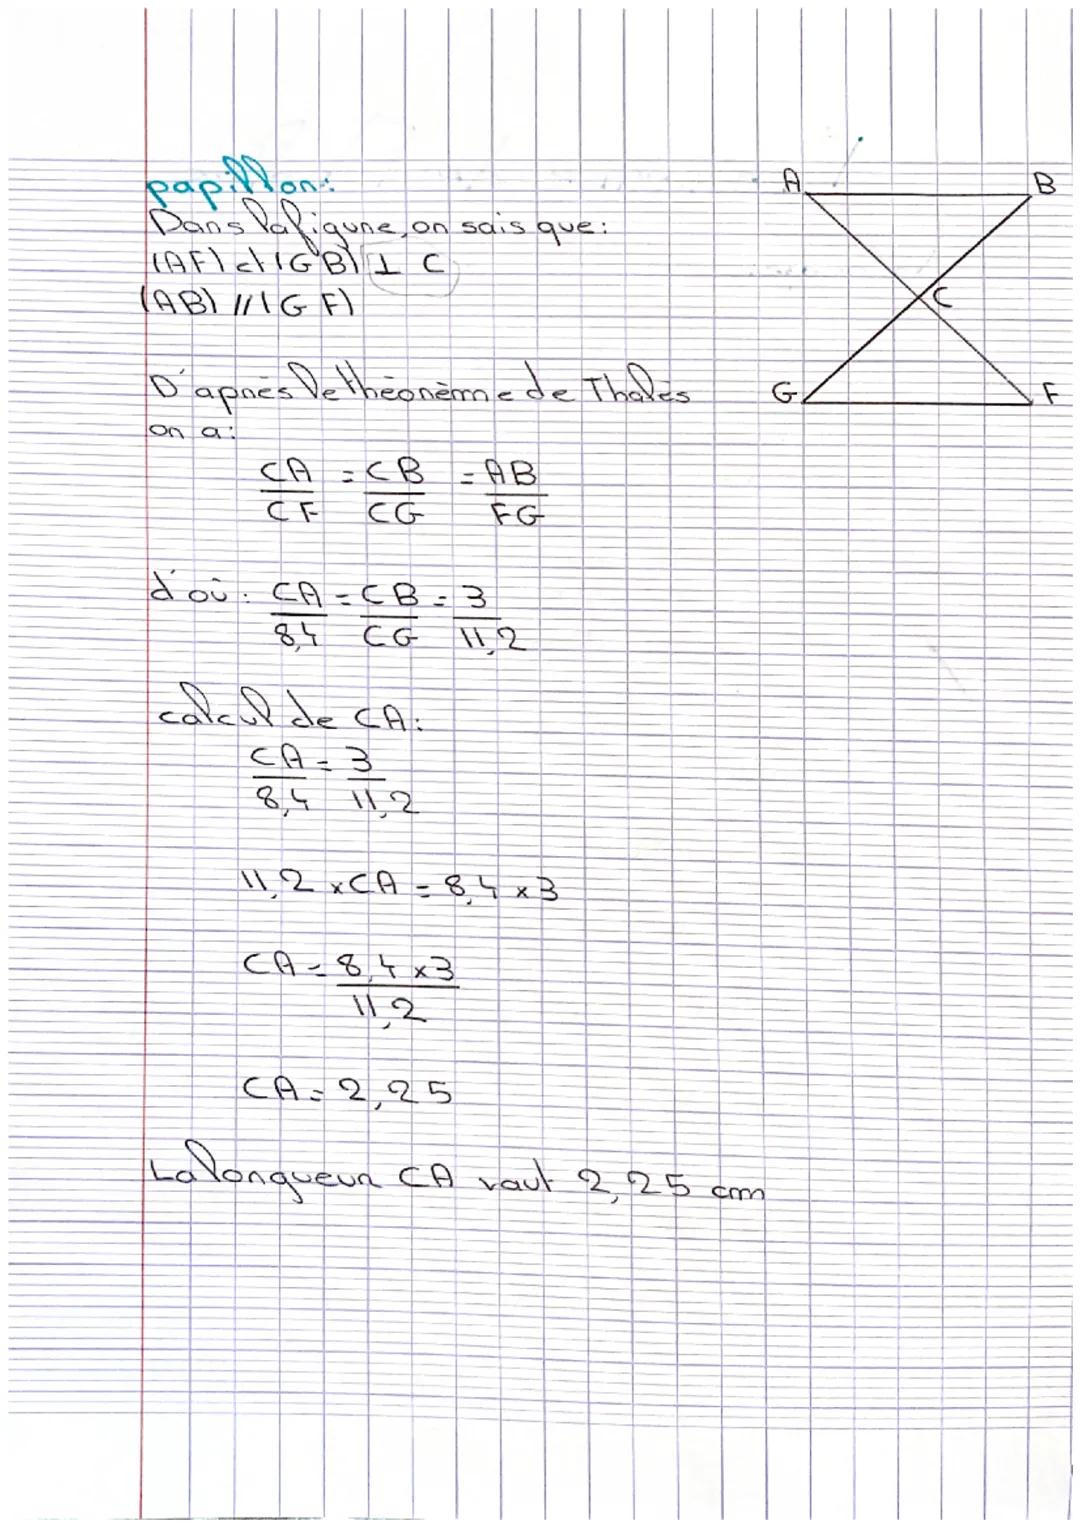 papillon:
Dans la figure, on sais que:
(AF) et (GB) ⊥ C
(AB) // (GF)
A
B
C
G
F
D'après le théorème de Thalès
on a:
CA = CB = AB
CF CG FG
d'où: CA = CB = 3
8,4 CG 11,2
calcul de CA:
CA = 3
8,4 11,2
11,2 × CA = 8,4 × 3
CA = 8,4 × 3
11,2
CA = 2,25
La longueur CA vaut 2,25 cm